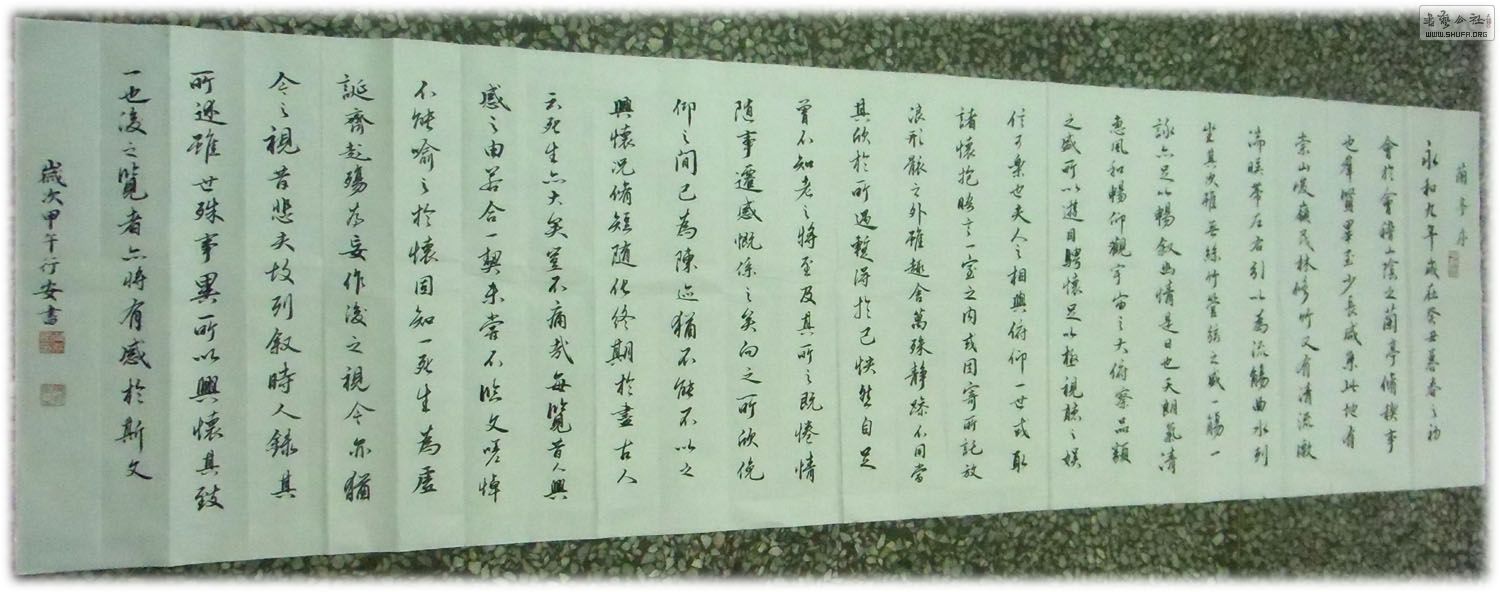 蘭亭序
永和九年歲在癸丑暮春之初
會於會稽山陰之蘭亭脩禊事
也群賢畢至少長咸集此地有
崇山峻嶺茂林脩竹又有清流激
湍暎帶左右引以為流觴曲水列
坐其次雖無絲竹管弦之盛一觴一
詠亦足以暢敘幽情是日也天朗氣清
惠風和暢仰觀宇宙之大俯察品類
之盛所以遊目騁懷足以極視聽之娛
信可樂也夫人之相與俯仰一世或取
諸懷抱晤言一室之內或因寄所託放
浪形骸之外雖趣舍萬殊靜躁不同當
其欣於所遇暫得於己怏然自足
曾不知老之將至及其所之既惓情
隨事遷感慨係之矣向之所欣俛
仰之間已為陳迹猶不能不以之
興懷況脩短隨化終期於盡古人
云死生亦大矣豈不痛哉每覽昔人興
感之由若合一契未嘗不臨文嗟悼
不能喻之於懷固知一死生為虛
誕齊彭殤為妄作後之視今亦猶
今之視昔悲夫故列敘時人錄其
所述雖世殊事異所以興懷其致
一也後之覽者亦將有感於斯文
歲次甲午行安書
書藝公社
WWW.SHUFA.ORG